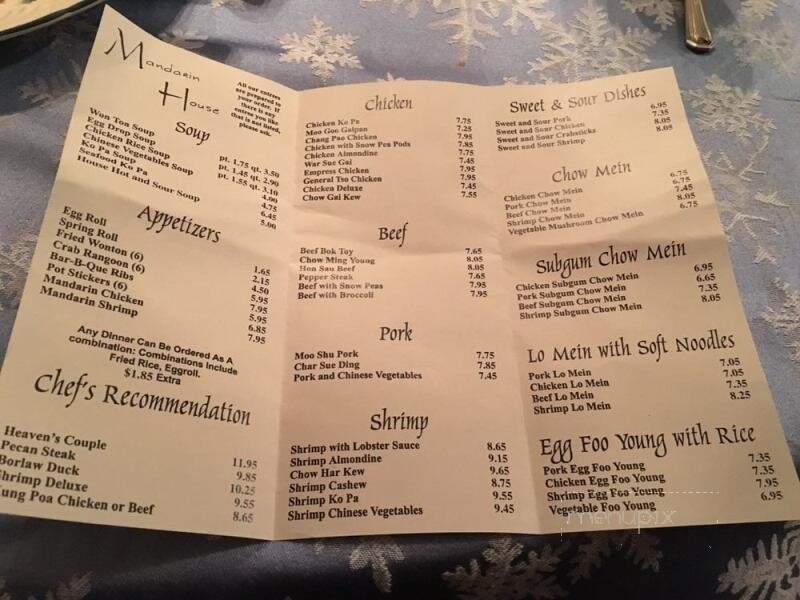 Mandarin
House
All our entrees
are prepared to
your order. If
there is any
entree you like
that is not listed,
please ask.
Soup
Won Ton Soup pt. 1.75 qt. 3.50
Egg Drop Soup pt. 1.45 qt. 2.90
Chicken Rice Soup pt. 1.55 qt. 3.10
Chinese Vegetables Soup 4.00
Ko Pa Soup 4.75
Seafood Ko Pa 6.45
House Hot and Sour Soup 5.00
Appetizers
Egg Roll 1.65
Spring Roll 2.15
Fried Wonton (6) 4.50
Crab Rangoon (6) 5.95
Bar-B-Que Ribs 7.95
Pot Stickers (6) 5.95
Mandarin Chicken 6.85
Mandarin Shrimp 7.95
Any Dinner Can Be Ordered As A
combination: Combinations Include
Fried Rice, Eggroll.
$1.85 Extra
Chef's Recommendation
Heaven's Couple 11.95
Pecan Steak 9.85
Borlaw Duck 10.25
Shrimp Deluxe 9.55
ung Poa Chicken or Beef 8.65
Chicken
Chicken Ko Pa 7.75
Moo Goo Gaipan 7.25
Chang Pao Chicken 7.95
Chicken with Snow Pea Pods 7.85
Chicken Almondine 7.75
War Sue Gai 7.45
Empress Chicken 7.95
General Tso Chicken 7.95
Chicken Deluxe 7.45
Chow Gai Kew 7.55
Beef
Beef Bok Toy 7.65
Chow Ming Young 8.05
Hon Sau Beef 8.05
Pepper Steak 7.65
Beef with Snow Peas 7.95
Beef with Broccoli 7.95
Pork
Moo Shu Pork 7.75
Char Sue Ding 7.85
Pork and Chinese Vegetables 7.45
Shrimp
Shrimp with Lobster Sauce 8.65
Shrimp Almondine 9.15
Chow Har Kew 9.65
Shrimp Cashew 8.75
Shrimp Ko Pa 9.55
Shrimp Chinese Vegetables 9.45
Sweet & Sour Dishes
Sweet and Sour Pork 6.95
Sweet and Sour Chicken 7.35
Sweet and Sour Crabsticks 8.05
Sweet and Sour Shrimp 8.05
Chow Mein
Chicken Chow Mein 6.75
Pork Chow Mein 6.75
Beef Chow Mein 7.45
Shrimp Chow Mein 8.05
Vegetable Mushroom Chow Mein 6.75
Subgum Chow Mein
Chicken Subgum Chow Mein 6.95
Pork Subgum Chow Mein 6.65
Beef Subgum Chow Mein 7.35
Shrimp Subgum Chow Mein 8.05
Lo Mein with Soft Noodles
Pork Lo Mein 7.05
Chicken Lo Mein 7.05
Beef Lo Mein 7.35
Shrimp Lo Mein 8.25
Egg Foo Young with Rice
Pork Egg Foo Young 7.35
Chicken Egg Foo Young 7.35
Shrimp Egg Foo Young 7.95
Vegetable Foo Young 6.95
menupix